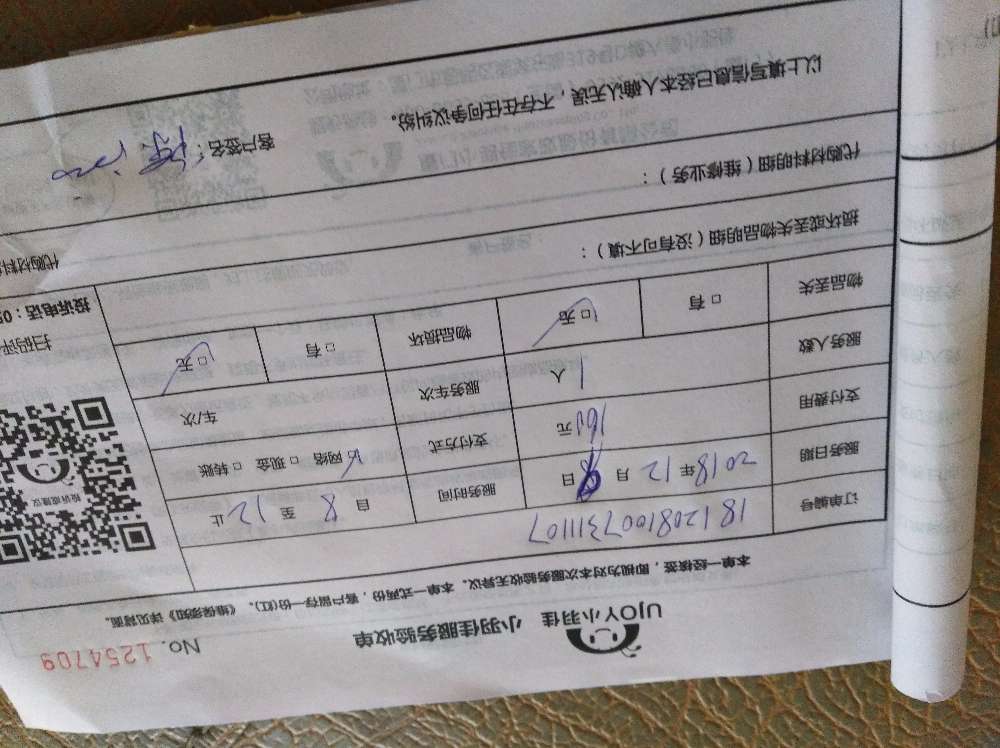 UJOY小羽佳 小羽佳服务验收单 No. 1254709
本单一经核签，即视为对本次服务验收无异议。本单一式两份，客户留存一份(红)。《维保须知》详见背面。
订单编号 181208100731107
服务日期 2018年12月8日 服务时间 自8至12止
支付费用 160元 支付方式 □网络 □现金 □转账
服务人数 1人 服务车次 车/次
物品丢失 □有 □无 物品损坏 □有 □无
损坏或丢失物品明细（没有可不填）：
代购材料明细（维修业务）：
以上填写信息已经本人确认无误，不存在任何争议纠纷。
客户签名：
投诉或建议
扫码评
投诉电话：05
代购材料